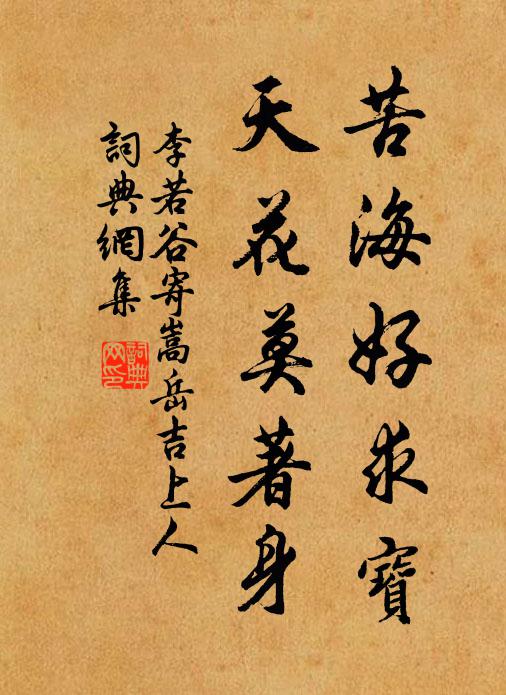 苦海好求寶
天花莫著身
李若谷寄嵩岳吉上人
詞典網集
詞典網印